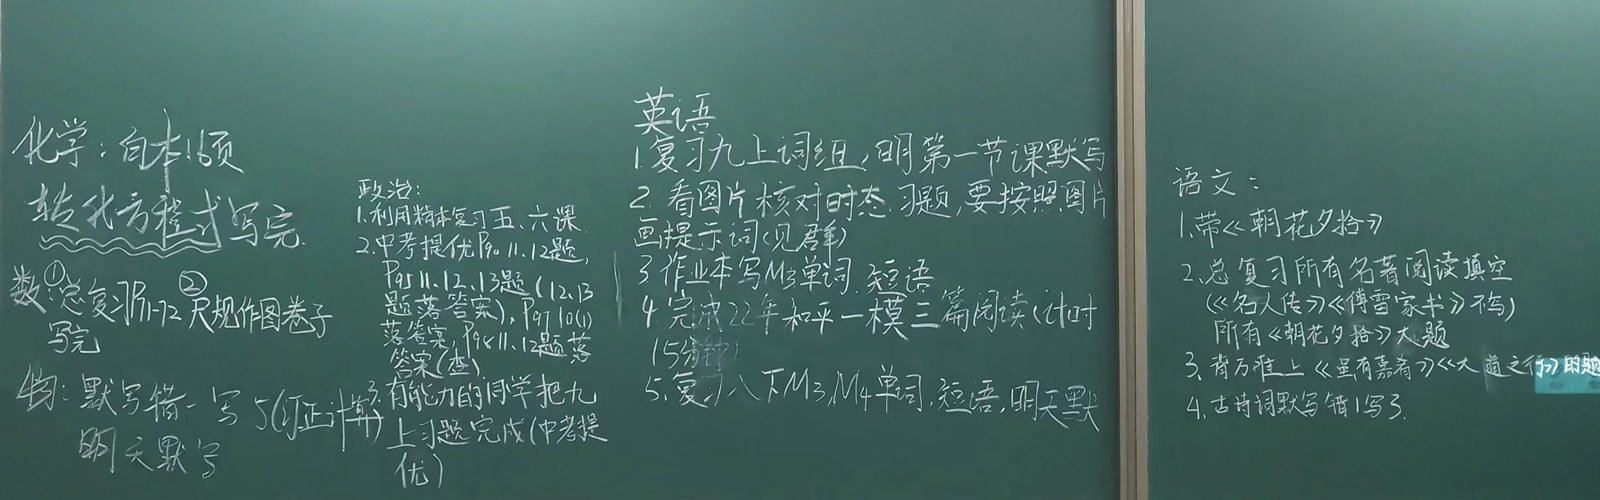 化学：白本16页
转化方程式写完.
数：①总复习P71-72 ②尺规作图卷子
写完
物：默写错一写5(订正计算)
明天默写
政治：
1.利用精本复习五、六课.
2.中考提优P90.11.12题,
P95 11.12.13题(12.13
题落答案), P97 10(1)
落答案, P98 11.12题落
答案(查)
3.有能力的同学把九
上习题完成(中考提
优)
英语
1.复习九上词组,明第一节课默写
2.看图片核对时态.习题,要按照图片
画提示词(见群)
3.作业本写M3单词.短语
4.完成22年和平一模三篇阅读(计时
15分钟)
5.复习八下M3,M4单词,短语,明天默
语文：
1.带《朝花夕拾》
2.总复习所有名著阅读填空
(《名人传》《傅雷家书》不写)
所有《朝花夕拾》大题
3. 上《虽有嘉肴》《大道之行》的题
4.古诗词默写错1写3.